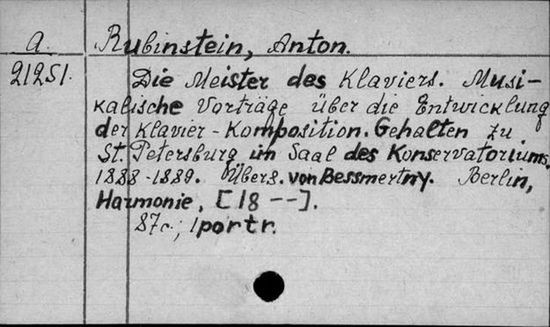 A. Rubinstein, Anton.
21251. Die Meister des Klaviers. Musi-
kalische Vorträge über die Entwicklung
der Klavier-Komposition. Gehalten zu
St. Petersburg im Saal des Konservatoriums.
1888-1889. Übers. von Bessmertny. Berlin,
Harmonie, [18--].
87c.; 1portr.